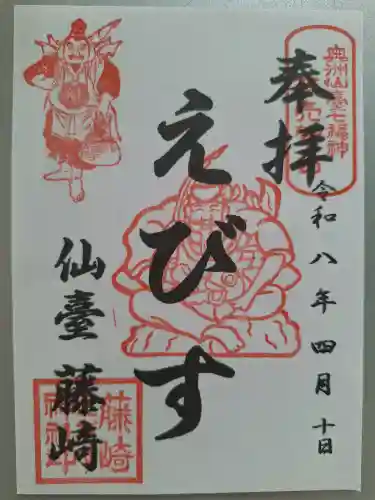 奉拝
奥州仙臺七福神
令和八年四月十日
えびす
仙臺藤崎
藤崎